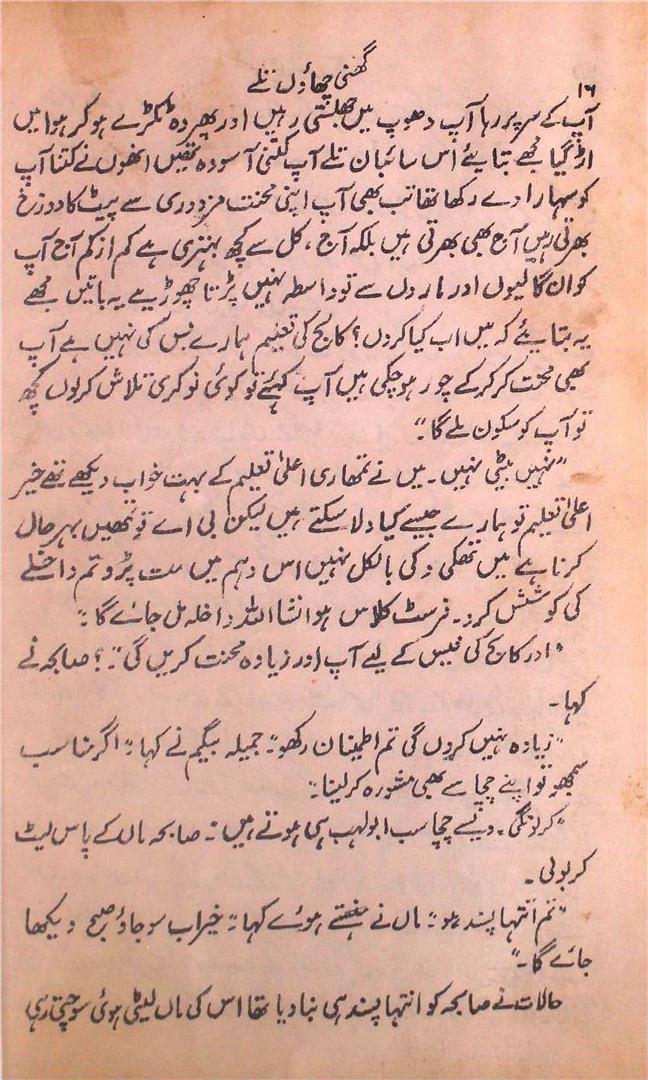 گھنی چھاؤں تلے
۱۶
آپ کے سر پر رہا آپ دھوپ میں جھلستی رہیں اور پھر وہ ٹکڑے ہو کر ہوا میں
اڑ گیا مجھے بتایئے اس سائبان تلے آپ کتنی آسودہ تھیں انھوں نے کتنا آپ
کو سہارا دے رکھا تھا تب بھی آپ اپنی محنت مزدوری سے پیٹ کا دوزخ
بھرتی رہیں آج بھی بھرتی ہیں بلکہ آج ، کل سے کچھ بہتری ہے کم از کم آج آپ
کو ان گالیوں اور ماردوں سے تو واسطہ نہیں پڑتا چھوڑیے یہ باتیں مجھے
یہ بتایئے کہ میں اب کیا کروں؟ کالج کی تعلیم ہمارے بس کی نہیں ہے آپ
بھی محنت کر کر کے چور ہو چکی ہیں آپ کہئے تو کوئی نوکری تلاش کرلوں کچھ
تو آپ کو سکون ملے گا۔"
"نہیں بیٹی نہیں۔ میں نے تمھاری اعلیٰ تعلیم کے بہت خواب دیکھے تھے خیر
اعلیٰ تعلیم تو ہمارے جیسے کیا دلا سکتے ہیں لیکن بی اے تو تمھیں بہر حال
کرنا ہے میں تھکی وکی بالکل نہیں اس وہم میں مت پڑو تم داخلے
کی کوشش کرو۔ فرسٹ کلاس ہو انشا اللہ داخلہ مل جائے گا۔"
"اور کالج کی فیس کے لیے آپ اور زیادہ محنت کریں گی"۔؟ صابحہ نے
کہا۔
"زیادہ نہیں کروں گی تم اطمینان رکھو۔" جمیلہ بیگم نے کہا۔" اگر مناسب
سمجھو تو اپنے چچا سے بھی مشورہ کر لینا۔"
"کر لونگی۔ ویسے چچا سب ابولہب ہی ہوتے ہیں۔" صابحہ ماں کے پاس لیٹ
کر بولی۔
"تم انتہا پسند ہو۔" ماں نے ہنستے ہوئے کہا۔" خیر اب سو جاؤ صبح دیکھا
جائے گا۔"
حالات نے صابحہ کو انتہا پسند ہی بنا دیا تھا اس کی ماں لیٹی ہوئی سوچتی رہی